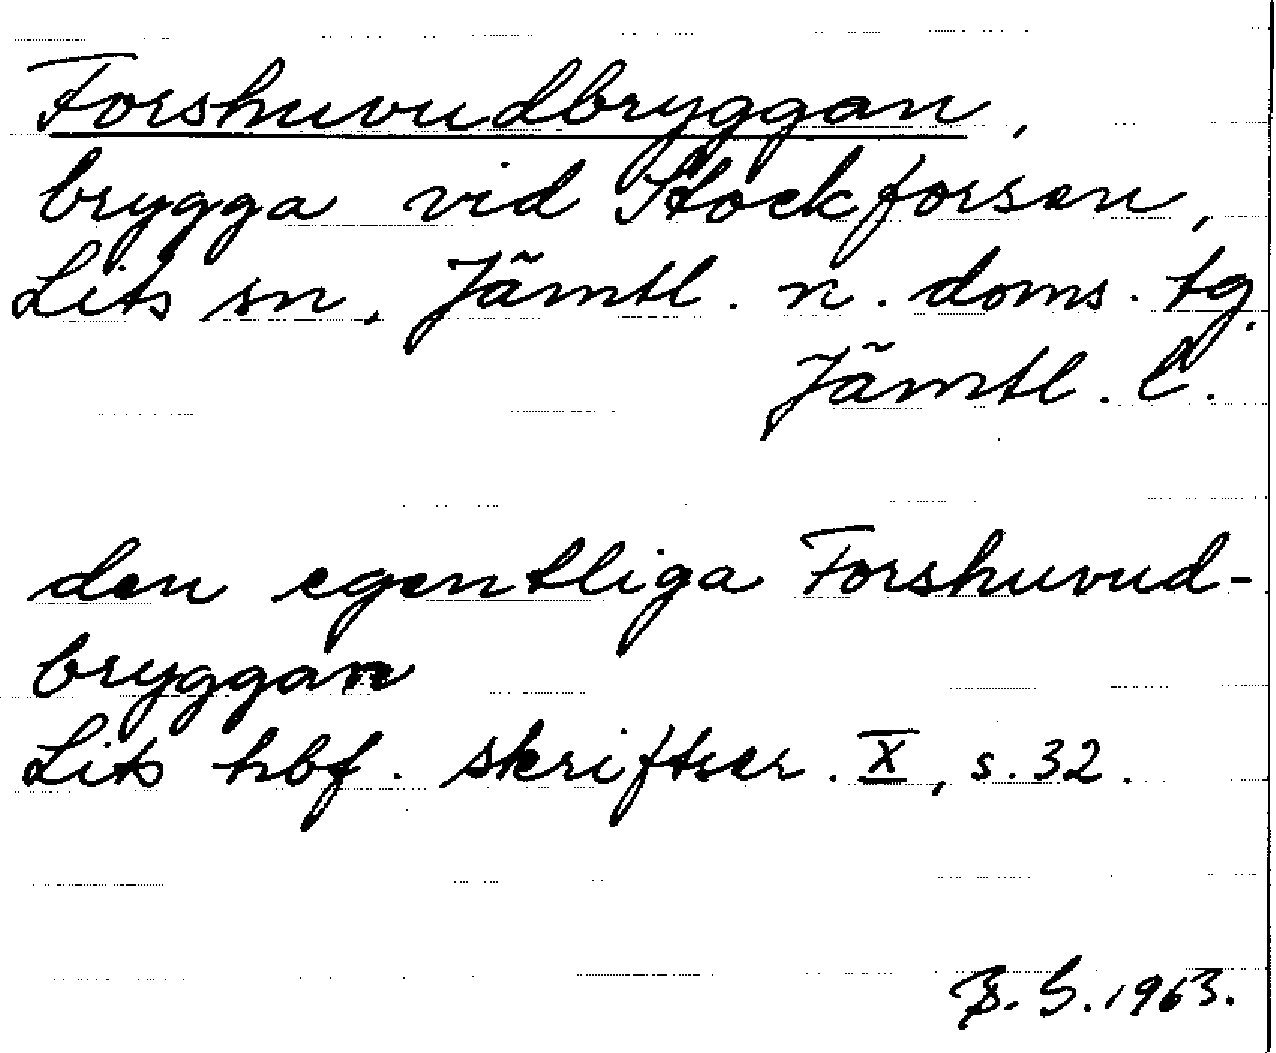 Forshuvudbryggan,
brygga vid Stockforsen,
Lits sn, Jämtl. n. doms. tg.
Jämtl. l.
den egentliga Forshuvud-
bryggan
Lits hbf. skriftser. X, s. 32.
B. G. 1963.